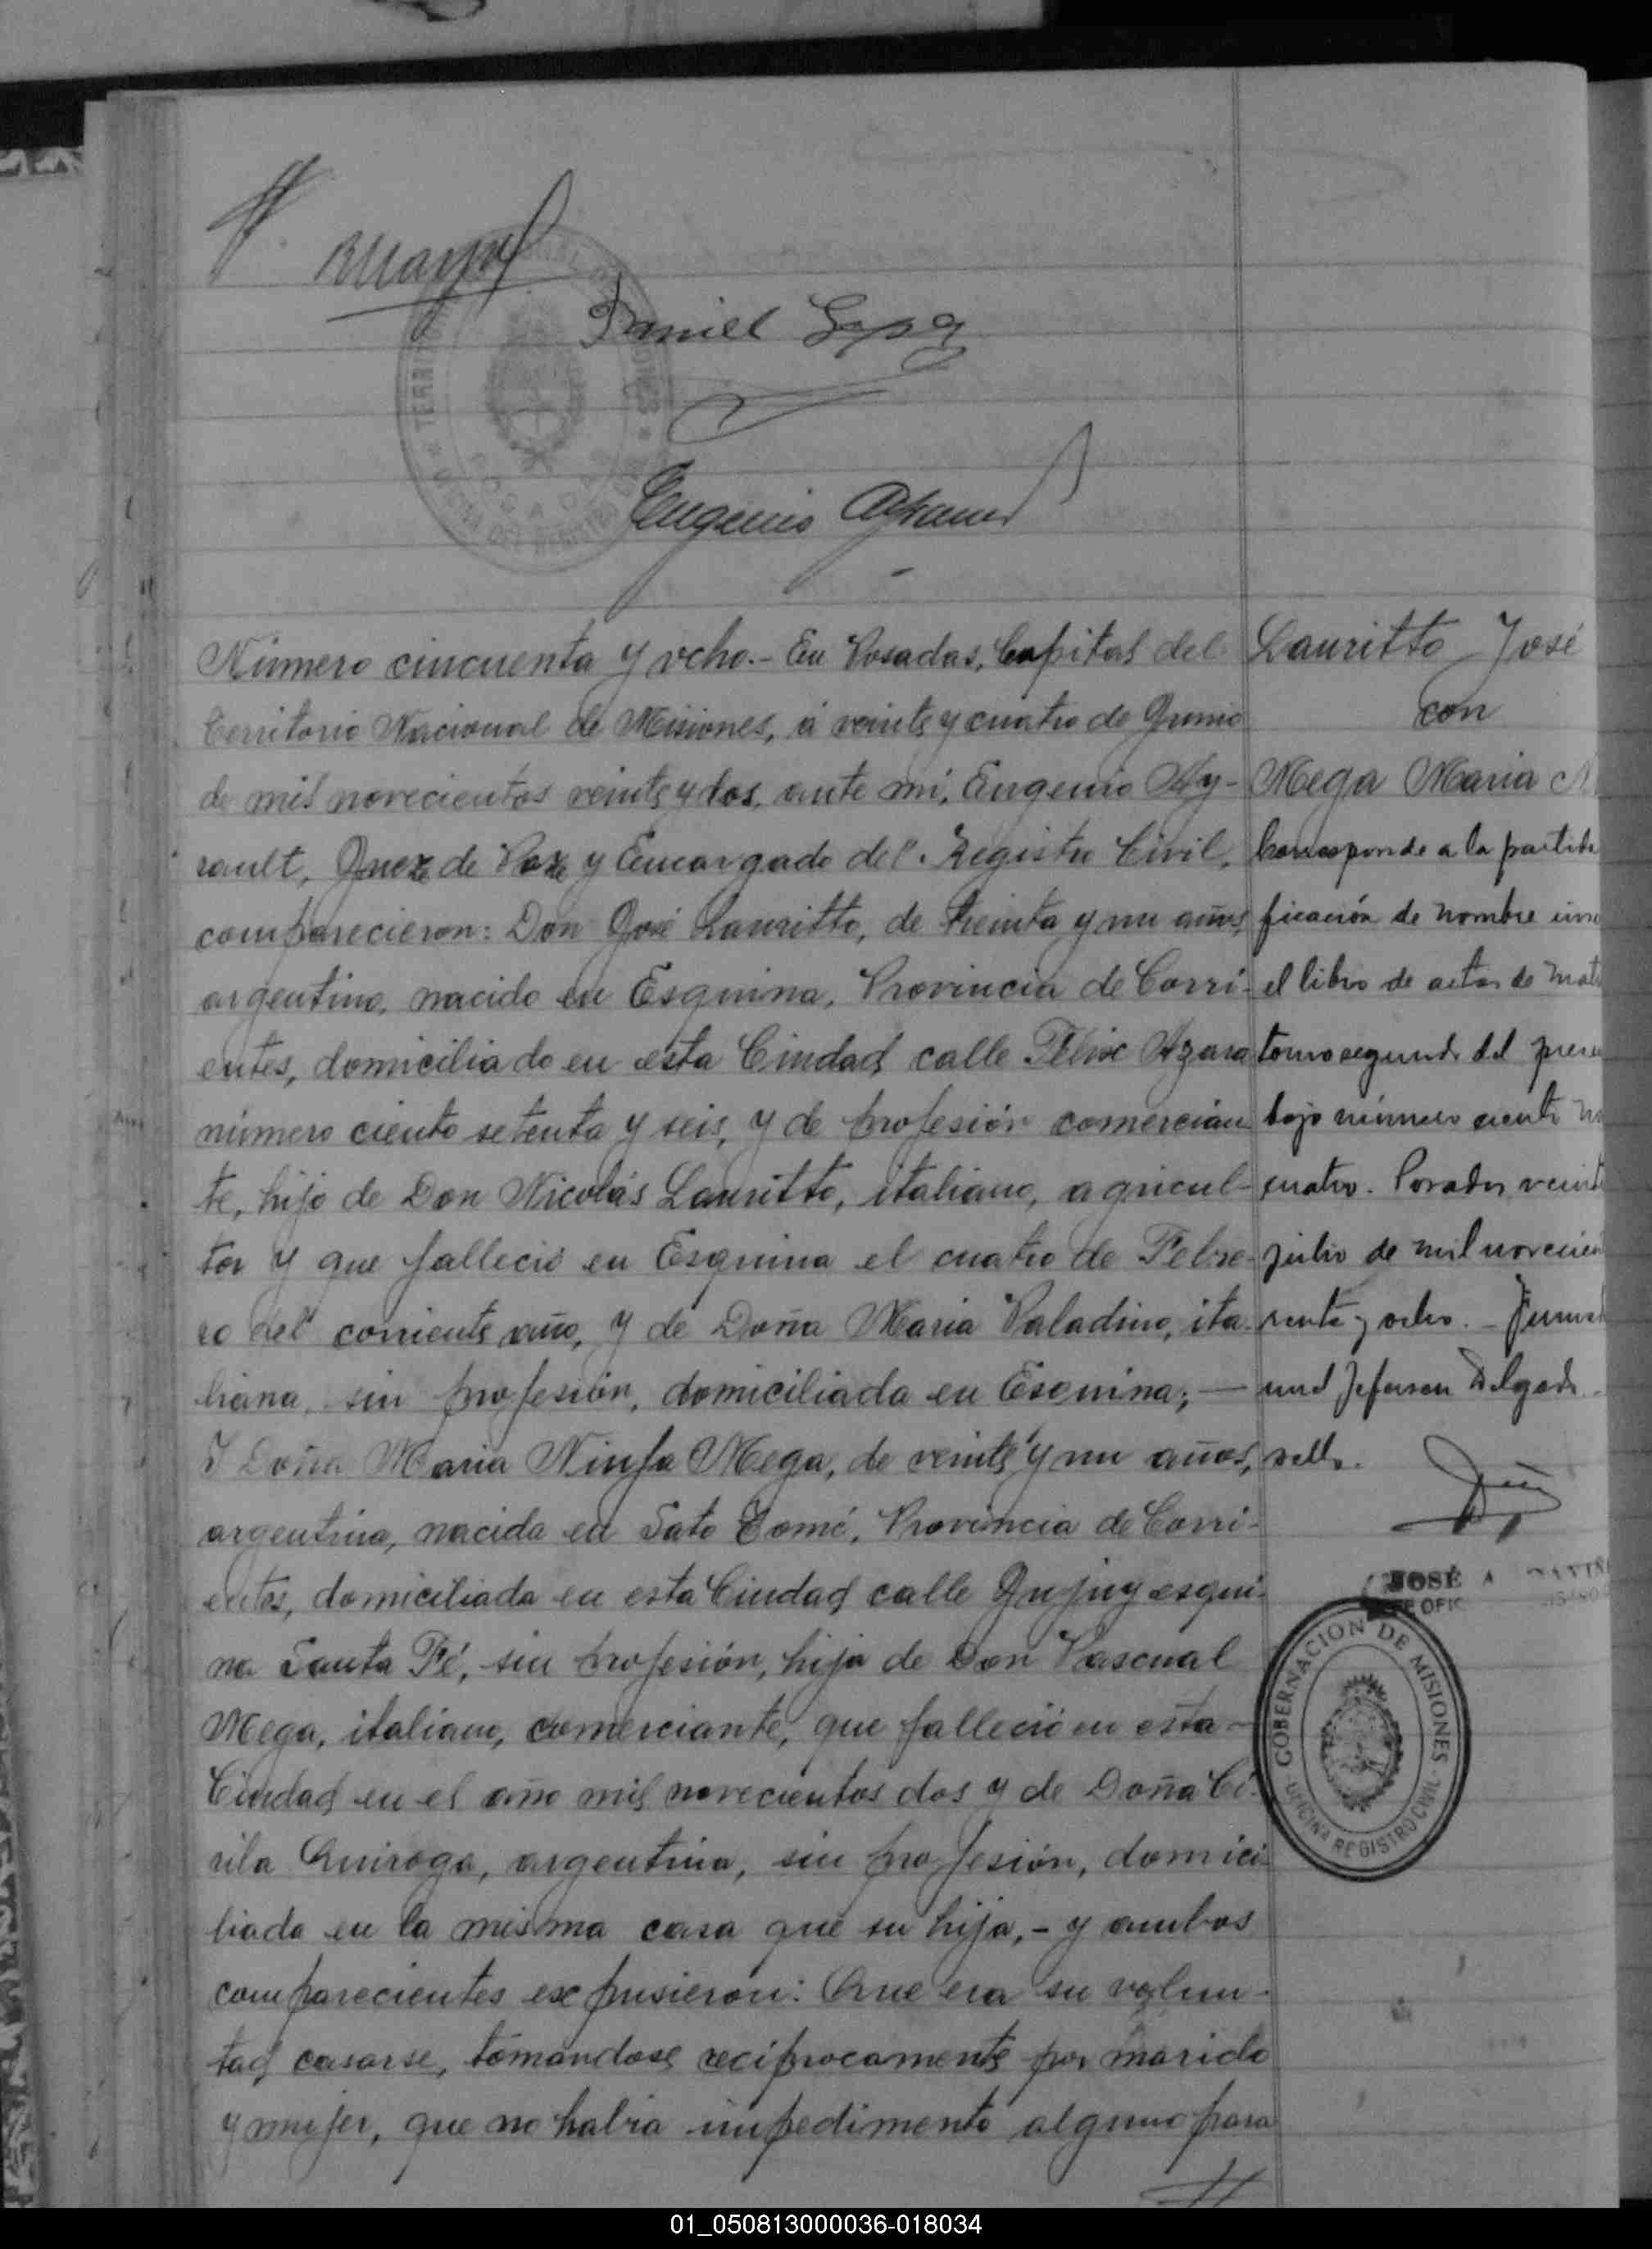 Daniel
Eugenio
Número cincuenta y ocho.- En Posadas, Capital del
Territorio Nacional de Misiones, á veinte y cuatro de Junio
de mil novecientos veinte y dos, ante mí, Eugenio Ay-
rault, Juez de Paz y Encargado del Registro Civil,
comparecieron: Don José Lauritto, de treinta y un años,
argentino, nacido en Esquina, Provincia de Corri-
entes, domiciliado en esta Ciudad calle Félix Azara
número ciento setenta y seis, y de profesión comercian
te, hijo de Don Nicolás Lauritto, italiano, agricul-
tor y que falleció en Esquina el cuatro de Febre-
ro del corriente año, y de Doña Maria Paladino, ita-
liana, sin profesión, domiciliada en Esquina; —
Y Doña Maria Ninfa Mega, de veinte y un años,
argentina, nacida en Sato Tomé, Provincia de Corri-
entes, domiciliada en esta Ciudad calle Jujuy esqui-
na Santa Fé, sin profesión, hija de Don Pascual
Mega, italiano, comerciante, que falleció en esta -
Ciudad en el año mil novecientos dos y de Doña Ci-
rila Quiroga, argentina, sin profesión, domici-
liada en la misma casa que su hija, - y ambos
comparecientes expusieron: Que era su volun-
tad casarse, tomandose reciprocamente por marido
y mujer, que no habia impedimento alguno para
Lauritto José
con
Mega Maria
Corresponde a la partida
ficación de nombre
el libro de actas de
tomo segundo del
bajo número ciento
cuatro. Posadas
julio de mil
renta y ocho. -
Jeferson Delgado
sello.
JOSÉ A
GOBERNACION DE MISIONES
OFICINA REGISTRO CIVIL
01_050813000036-018034